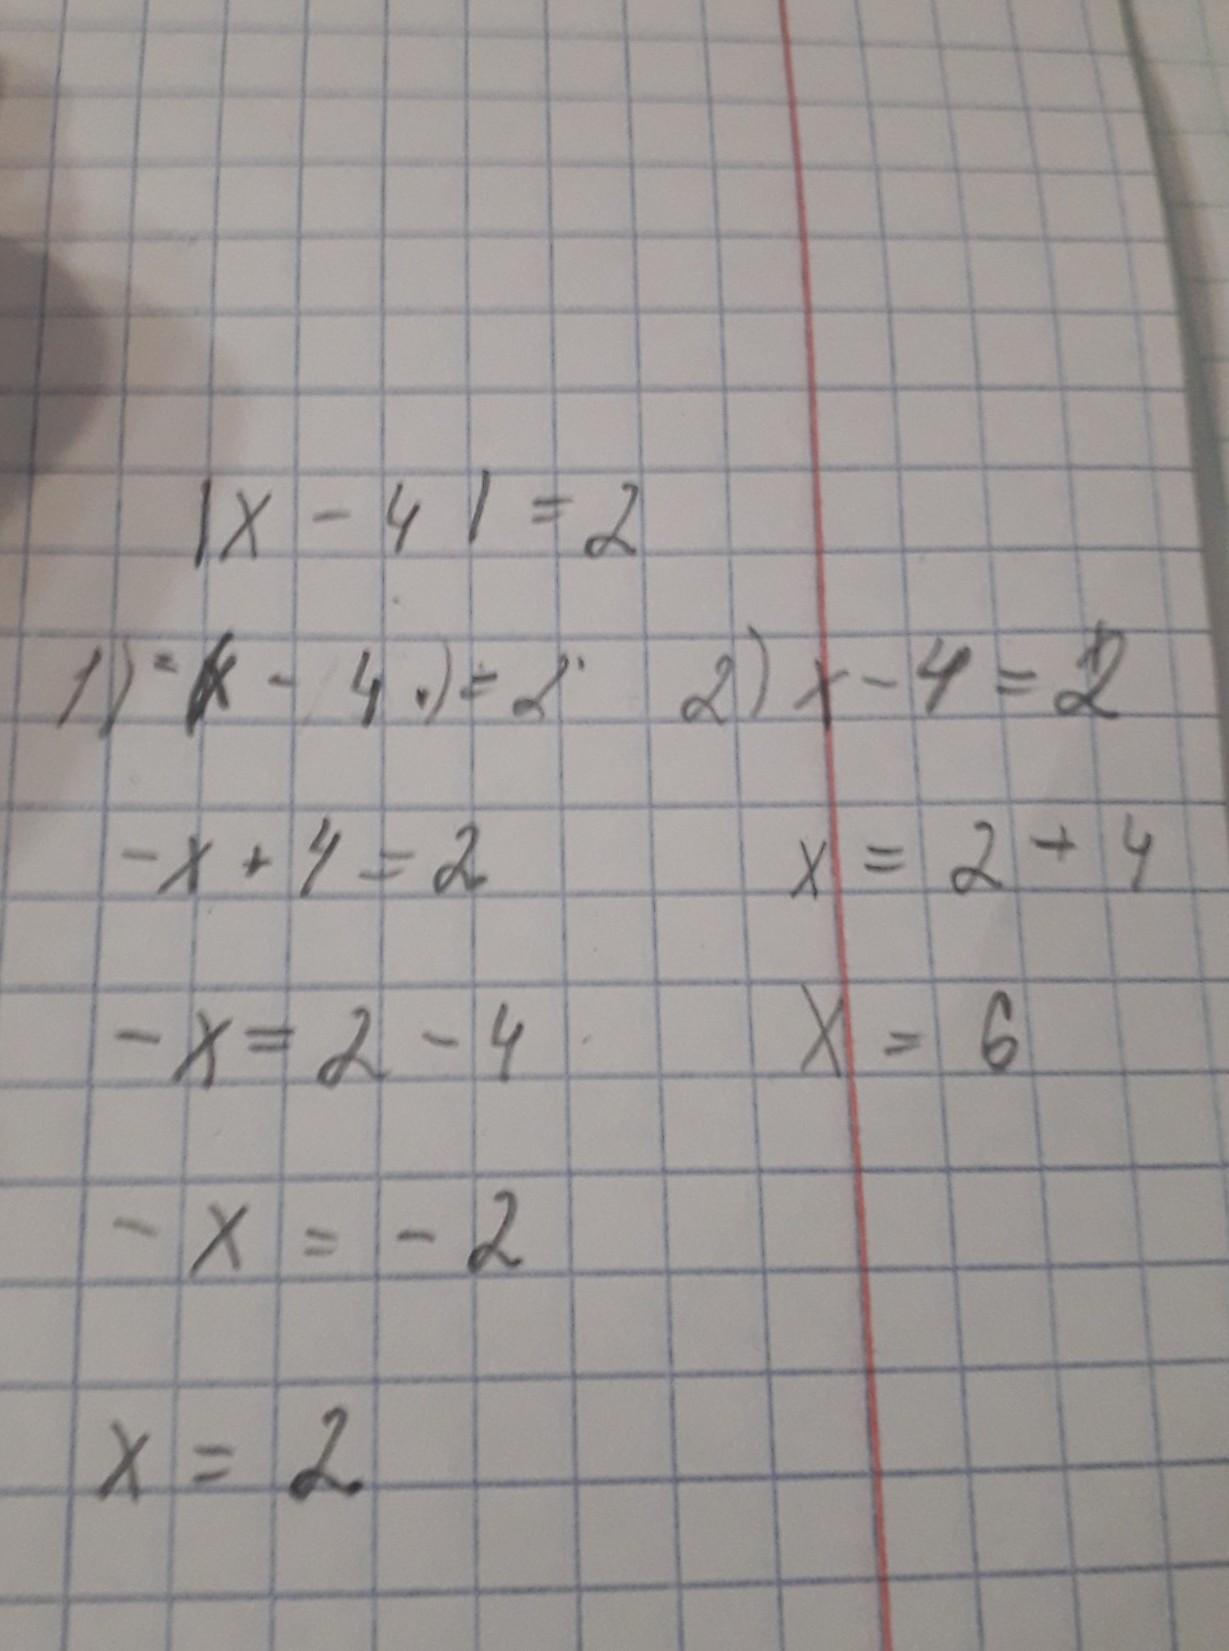 |x - 4| = 2
1) -(x - 4) = 2 2) x - 4 = 2
-x + 4 = 2 x = 2 + 4
-x = 2 - 4 x = 6
-x = -2
x = 2